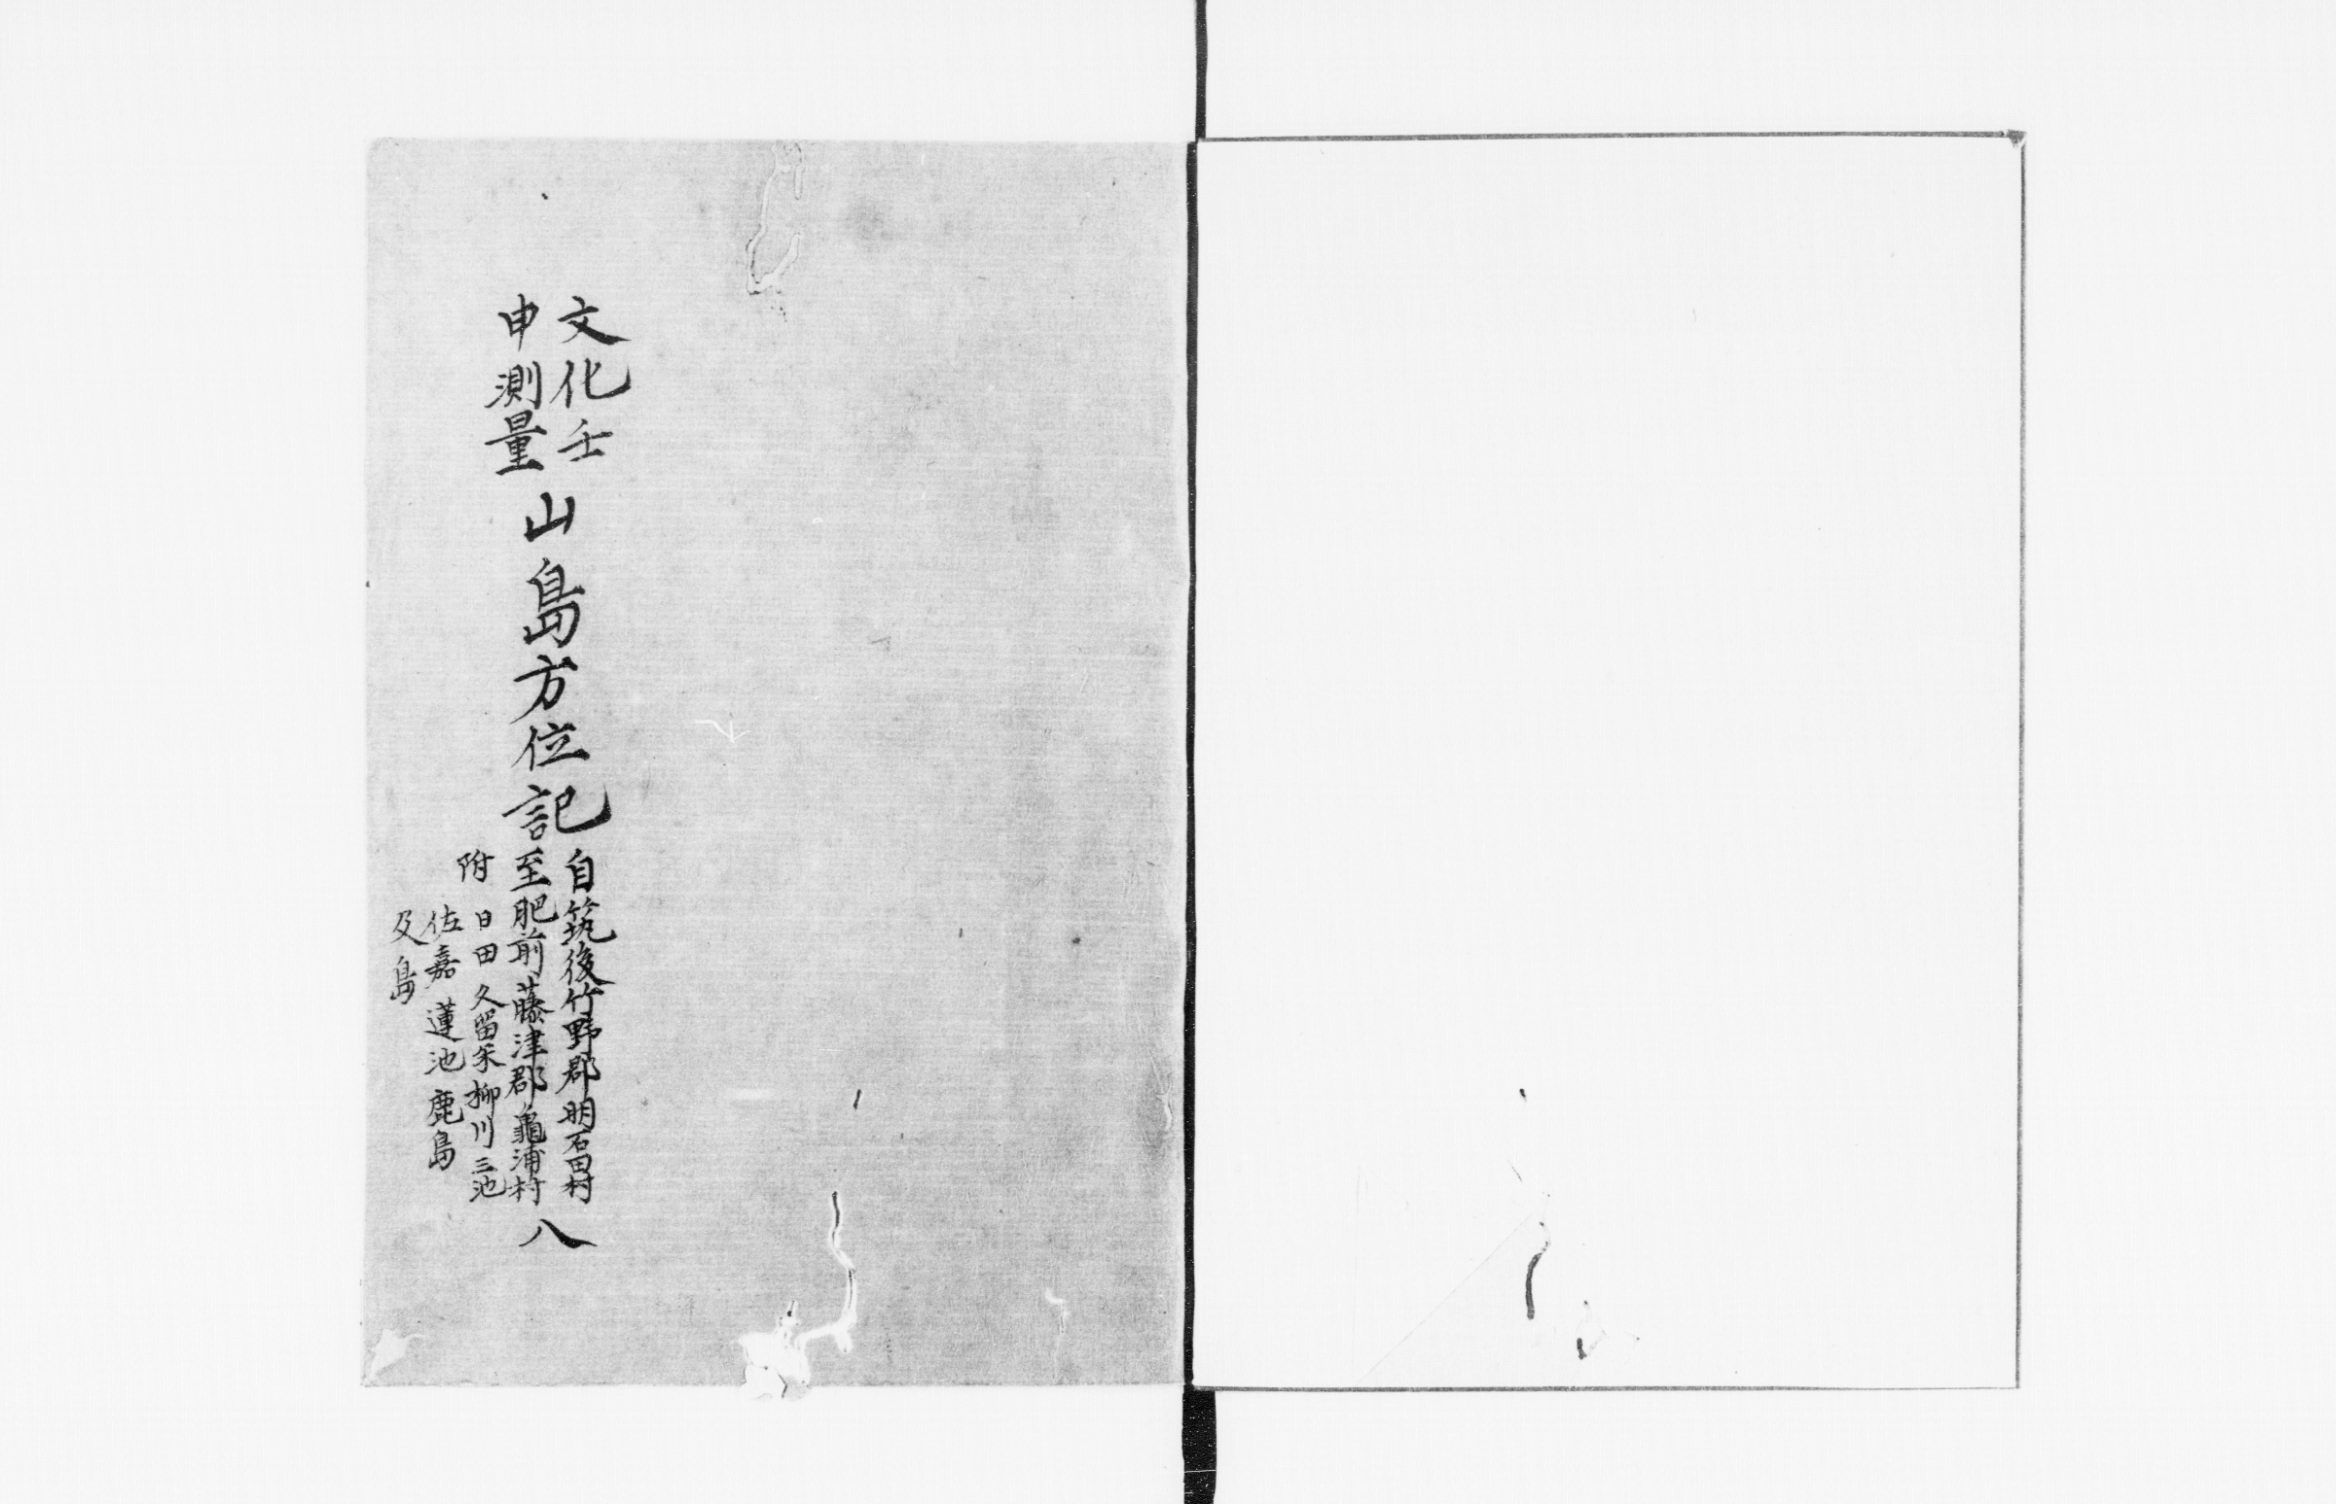 文化壬
申測量
山島方位記
自筑後竹野郡明石田村
至肥前藤津郡龜浦村
附
日田 久留米 柳川 三池
佐嘉 蓮池 鹿島
及島
八